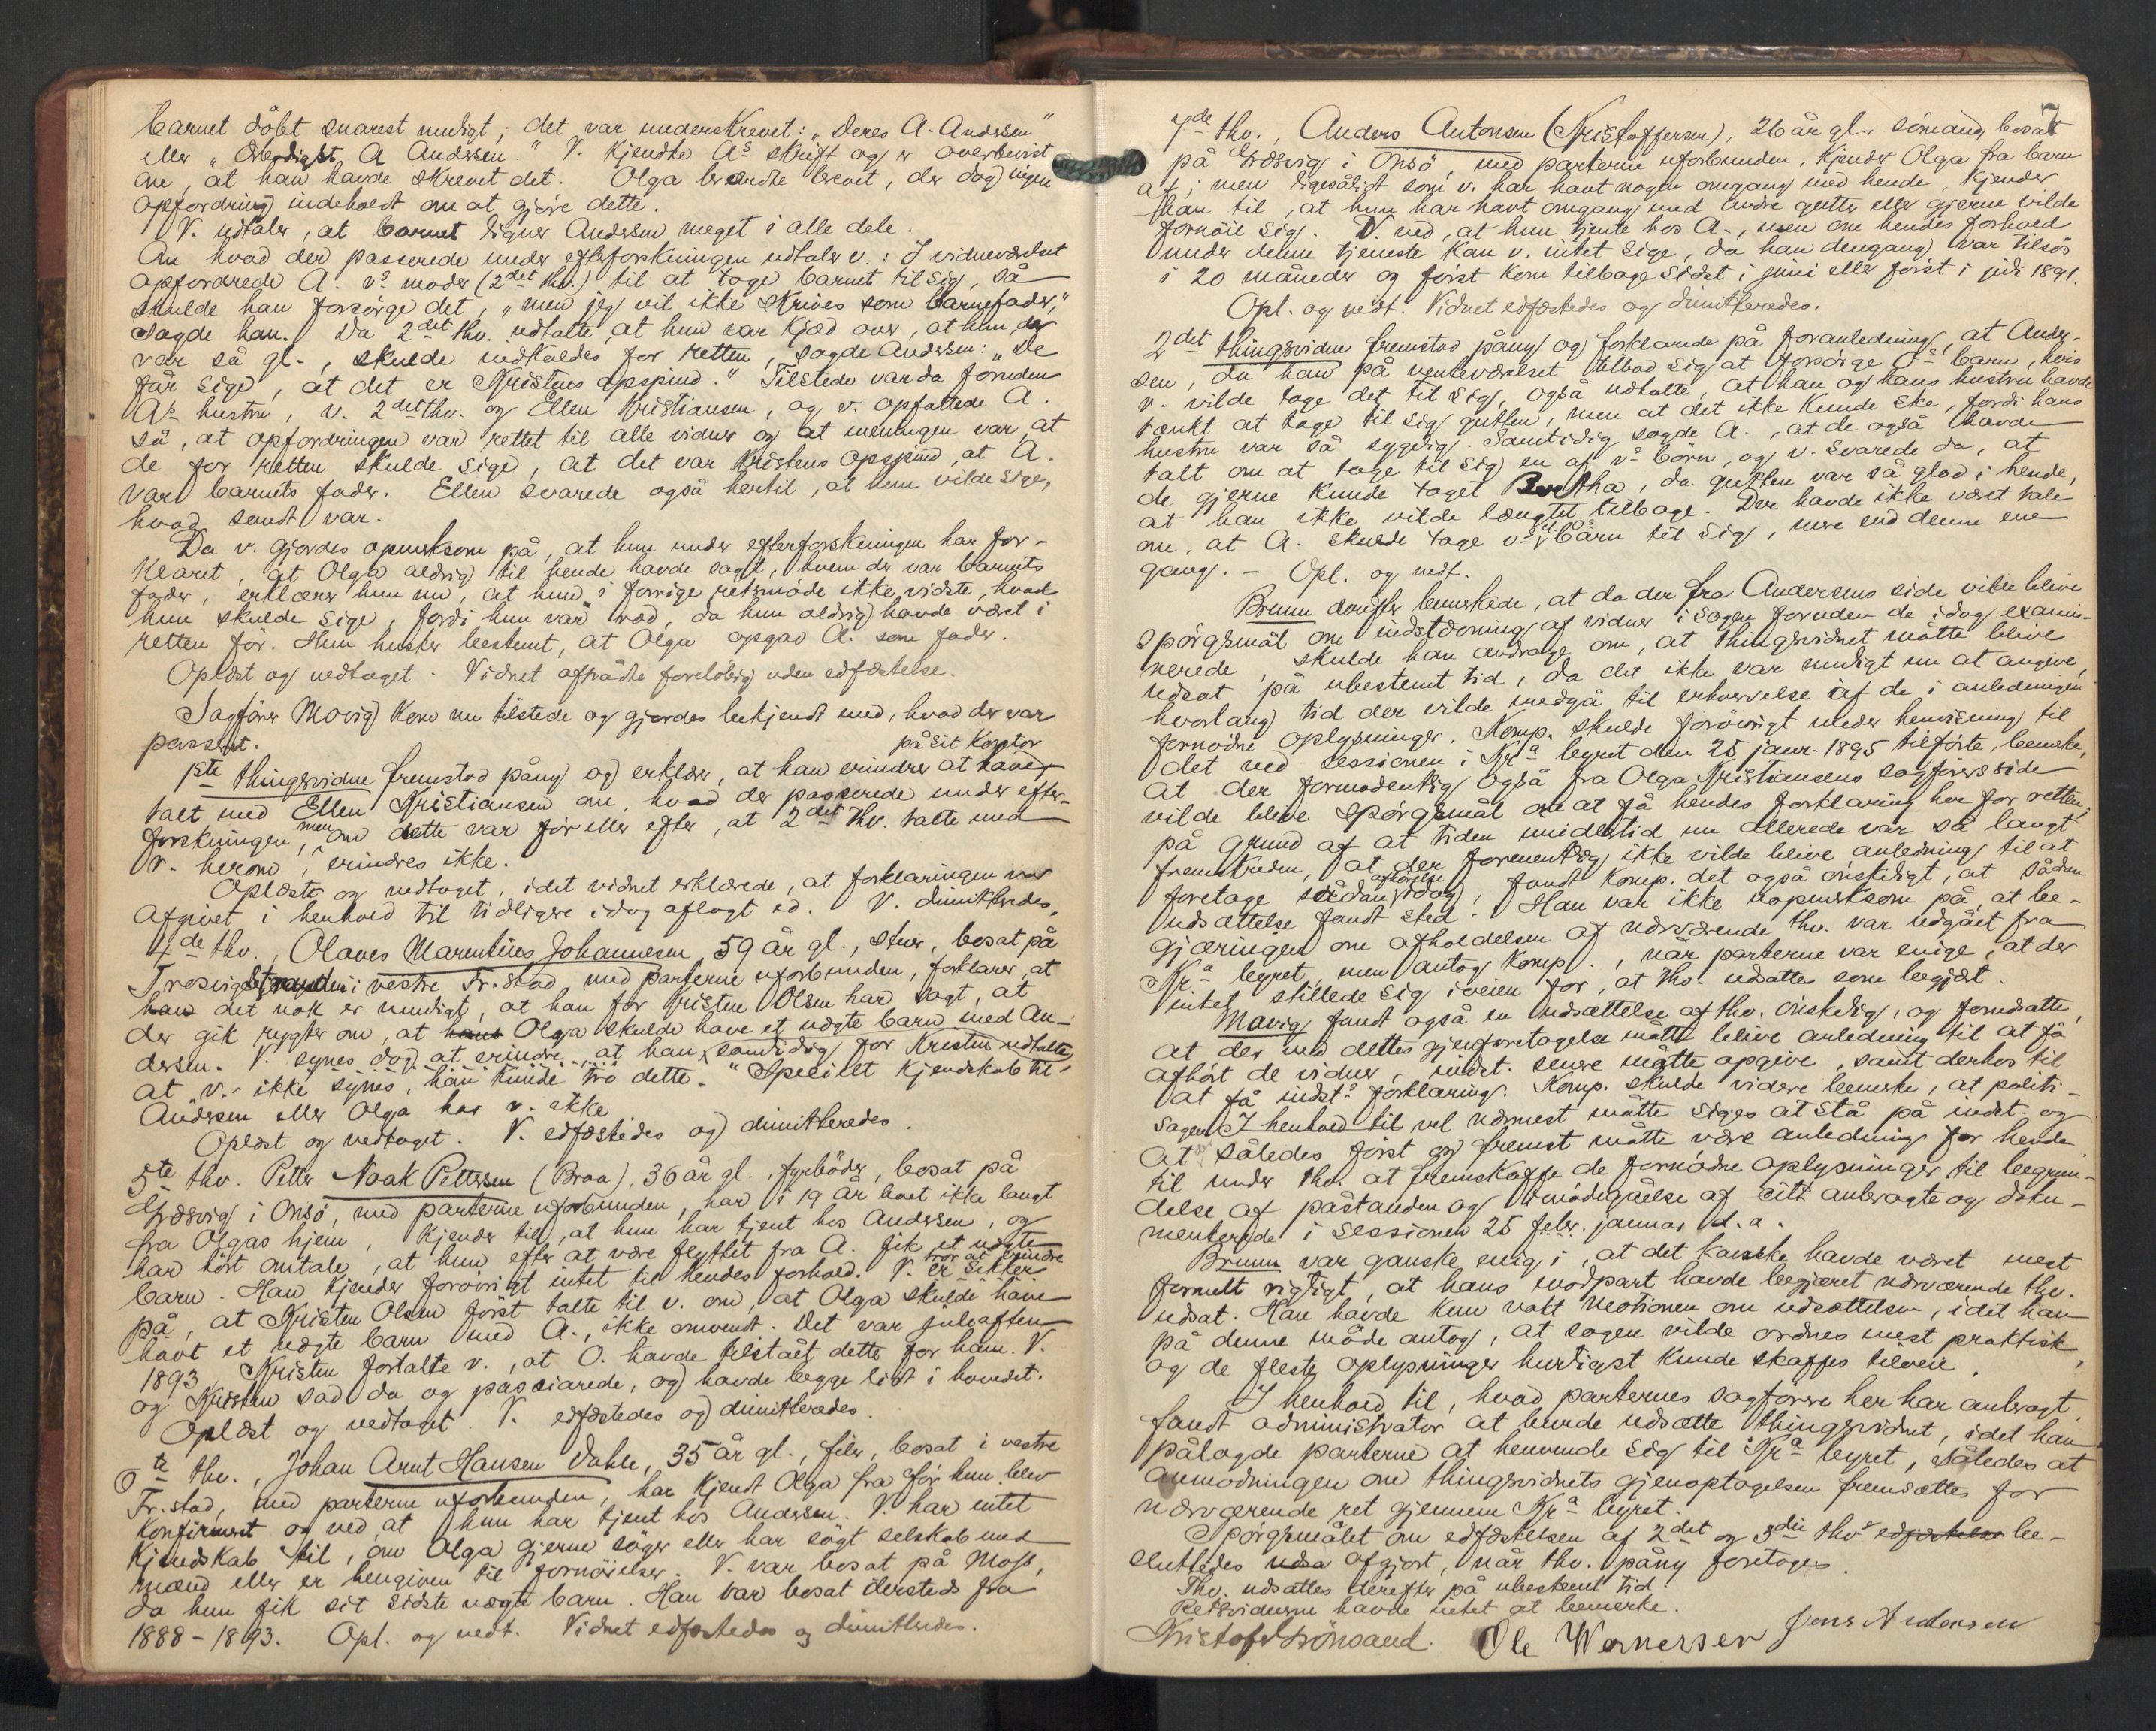 barnet döbt snarest muligt; det var underskrevet: „Deres A. Andersen"
eller „Ærbødigst A Andersen." V. kjendte As skrift og er overbevist
om, at han havde skrevet det. Olga brændte brevet, der dog ingen
opfordring indeholdt om at gjöre dette.
V. udtaler, at barnet ligner Andersen meget i alle dele.
Om hvad der passerede under efterforskningen udtaler v.: I vidneværelset
opfordrede A. vs moder (2det thv.) til at tage barnet til sig, så
skulde han forsörge det, „men jeg vil ikke skrives som barnefader,"
sagde han. Da 2det thv. udtalte, at hun var kjed over, at hun, der
var så gl., skulde indkaldes for retten, sagde Andersen: „De
får sige, at det er Kristens opspind." Tilstede var da foruden
As hustru, v. 2det thv. og Ellen Kristiansen, og v. opfattede A.
så, at opfordringen var rettet til alle vidner og at meningen var, at
de for retten skulde sige, at det var Kristens opspind, at A.
var barnets fader. Ellen svarede også hertil, at hun vilde sige,
hvad sandt var.
Da v. gjordes opmerksom på, at hun under efterforskningen har for-
klaret, at Olga aldrig til hende havde sagt, hvem der var barnets
fader, erklærer hun nu, at hun i forrige retsmöde ikke vidste, hvad
hun skulde sige, fordi hun var ræd, da hun aldrig havde været i
retten för. Hun husker bestemt, at Olga opgav A. som fader.
Oplæst og vedtaget. Vidnet aftrådte foreløbig uden edfæstelse.
Sagförer Movig kom nu tilstede og gjordes bekjendt med, hvad der var
passert.
på sit kontor
1ste thingsvidne fremstod påny og erklærer, at han erindrer at have
talt med Ellen Kristiansen om, hvad der passerede under efter-
forskningen, men om dette var för eller efter, at 2det thv. talte med
v. herom, erindres ikke.
Oplæste og vedtaget, idet vidnet erklærede, at forklaringen var
afgivet i henhold til tidligere idag aflagt ed. V. dimitteredes.
4de thv., Olaves Marentius Johannesen, 59 år gl., stuer, bosat på
Trosvigstranden i vestre Fr.stad med parterne uforbunden, forklarer, at
han det nok er muligt, at han for Kristen Olsen har sagt, at
der gik rygter om, at hans Olga skulde have et uægte barn med An-
dersen. V. synes dog at erindre, at han samtidig for Kristen udtalte,
at v. ikke synes, han kunde tro dette." Specielt kjendskab til
Andersen eller Olga har v. ikke
Oplæst og vedtaget. V. edfæstedes og dimitteredes.
5te thv. Petter Noak Pettersen (Braa), 36 år gl., fyrböder, bosat på
Græsvig i Onsö, med parterne uforbunden, har i 19 år boet ikke langt
fra Olgas hjem, kjender til, at hun har tjent hos Andersen, og
har hört omtale, at hun efter at være flyttet fra A. fik et uægte
barn. Han kjender forövrigt intet til hendes forhold. V. er sikker tror at erindre
på, at Kristen Olsen först talte til v. om, at Olga skulde have
havt et uægte barn med A., ikke omvendt. Det var juleaften
1893, Kristen fortalte v., at O. havde tilstået dette for ham. V.
og Kristen sad da og passiarede, og havde begge lidt i hovedet.
Oplæst og vedtaget. V. edfæstedes og dimitteredes.
6te thv., Johan Arnt Hansen Dahle, 35 år gl., filer, bosat i vestre
Fr.stad, med parterne uforbunden, har kjendt Olga fra för hun blev
konfirmert og ved, at hun har tjent hos Andersen. V. har intet
kjendskab til, om Olga gjerne söger eller har sögt selskab med
mænd eller er hengiven til fornöielser. V. var bosat på Moss,
da hun fik sit sidste uægte barn. Han var bosat dersteds fra
1888-1893. Opl. og vedt. Vidnet edfæstedes og dimitteredes.
7
7de thv., Anders Antonsen (Kristoffersen), 26 år gl., sömand, bosat
på Græsvig i Onsö, med parterne uforbunden, kjender Olga fra barn
af; men ligesålidt som v. har havt nogen omgang med hende, kjender
han til, at hun har havt omgang med andre gutter eller gjerne vilde
fornöie sig. V. ved, at hun tjente hos A., men om hendes forhold
under denne tjeneste kan v. intet sige, da han dengang var tilsös
i 20 måneder og först kom tilbage sidst i juni eller först i juli 1891.
Opl. og vedt. Vidnet edfæstedes og dimitteredes.
2det thingsvidne fremstod påny og forklarede på foranledning, at Ander-
sen, da han på venteværelset tilbød sig at forsörge Os barn, hvis
v. vilde tage det til sig, også udtalte, at han og hans hustru havde
tænkt at tage til sig gutten, men at det ikke kunde ske, fordi hans
hustru var så sygelig. Samtidig sagde A., at de også havde
talt om at tage til sig en af vs börn, og v. svarede da, at
de gjerne kunde taget Bertha, da gutten var så glad i hende,
at han ikke vilde længtet tilbage. Der havde ikke været tale
om, at A. skulde tage vs el. Os barn til sig, mere end denne ene
gang. – Opl. og vedt.
Brunn derefter bemerkede, at da der fra Andersens side vilde blive
spörgsmål om indstævning af vidner i sagen foruden de idag exami-
nerede, skulde han andrage om, at thingsvidnet måtte blive
udsat på ubestemt tid, da det ikke var muligt nu at angive,
hvorlang tid der vilde medgå til erhvervelse af de i anledningen
fornödne oplysninger. Komp. skulde forövrigt under henvisning til
det ved sessionen i Kra byret den 25 janr. 1895 tilförte, bemerke,
at der formodentlig også fra Olga Kristiansens sagförers side
vilde blive spörgsmål om at få hendes forklaring her for retten;
på grund af at tiden imidlertid nu allerede var så langt
fremskreden, at der formentlig ikke vilde blive anledning til at
foretage sådan afhörelse idag, fandt komp. det også önskeligt, at sådan
udsættelse fandt sted. Han var ikke uopmerksom på, at be-
gjæringen om afholdelsen af nærværende thv. var udgået fra
Kra byret, men antog komp., når parterne var enige, at der
intet stillede sig iveien for, at thv. udsattes som begjært.
Movig fandt også en udsættelse af thv. önskelig, og forudsatte,
at der ved dettes gjenforetagelse måtte blive anledning til at få
afhört de vidner, indst. senere måtte opgive, samt derhos til
at få indsts forklaring. Komp. skulde videre bemerke, at politi-
sagen I henhold til vel nærmest måtte siges at stå på indst. og
at således först og fremst måtte være anledning for hende
til under thv. at fremskaffe de fornödne oplysninger til begrun-
delse af påstanden og imödegåelse af cits anbragte og doku-
menterede i sessionen 25 febr. januar d. a.
Brunn var ganske enig i, at det kanske havde været mest
formelt rigtigt, at hans modpart havde begjæret nærværende thv.
udsat. Han havde kun vakt motionen om udsættelsen, idet han
på denne måde antog, at sagen vilde ordnes mest praktisk
og de fleste oplysninger hurtigst kunde skaffes tilveie.
I henhold til, hvad parternes sagförere her har anbragt,
fandt administrator at burde udsætte thingsvidnet, idet han
pålagde parterne at henvende sig til Kra byret, således at
anmodningen om thingsvidnets gjenoptagelsen fremsættes for
nærværende ret gjennem Kra byret.
Spörgsmålet om edfæstelsen af 2det og 3die thvs edfæstelse be-
sluttedes udsa afgjort, når thv. påny foretages.
Thv. udsattes derefter på ubestemt tid.
Retsvidnerne havde intet at bemerke.
Kristofer Grönsand. Ole Wernersen Jens Andersen